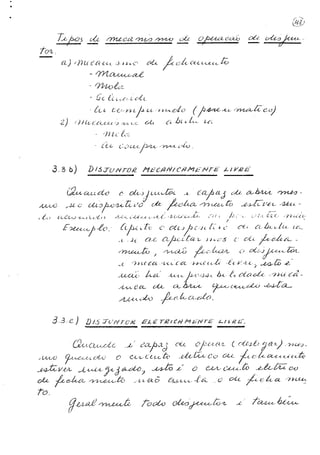 42
Tipos de mecanismo de operação do disjun-
tor.
a) Mecanismo de fechamento
- Manual
- Mola
- Solenoide
- Ar comprimido (pneumático)
2) Mecanismo de abertura
- Mola
- Ar comprimido.
3.3 b) DISJUNTOR MECANICAMENTE LIVRE
Quando o disjuntor é capaz de abrir mes-
mo se o dispositivo de fechamento estiver sen-
do
Exemplo: Aperte o dispositivo de abertura
e se apertarmos o de fecha-
mento, não fechar o disjuntor
é mecanicamente livre, isto é
não há possibilidade mecâ-
nica de abrir quando está
sendo fechado.
3.3.c) DISJUNTOR ELETRICAMENTE LIVRE.
Quando é capaz de operar (desligar) mes-
mo quando o circuito elétrico de fechamento
estiver energizado, isto é o circuito elétrico
de fechamento não cancela o de fechamen
to.
Geralmente todo disjuntor é também